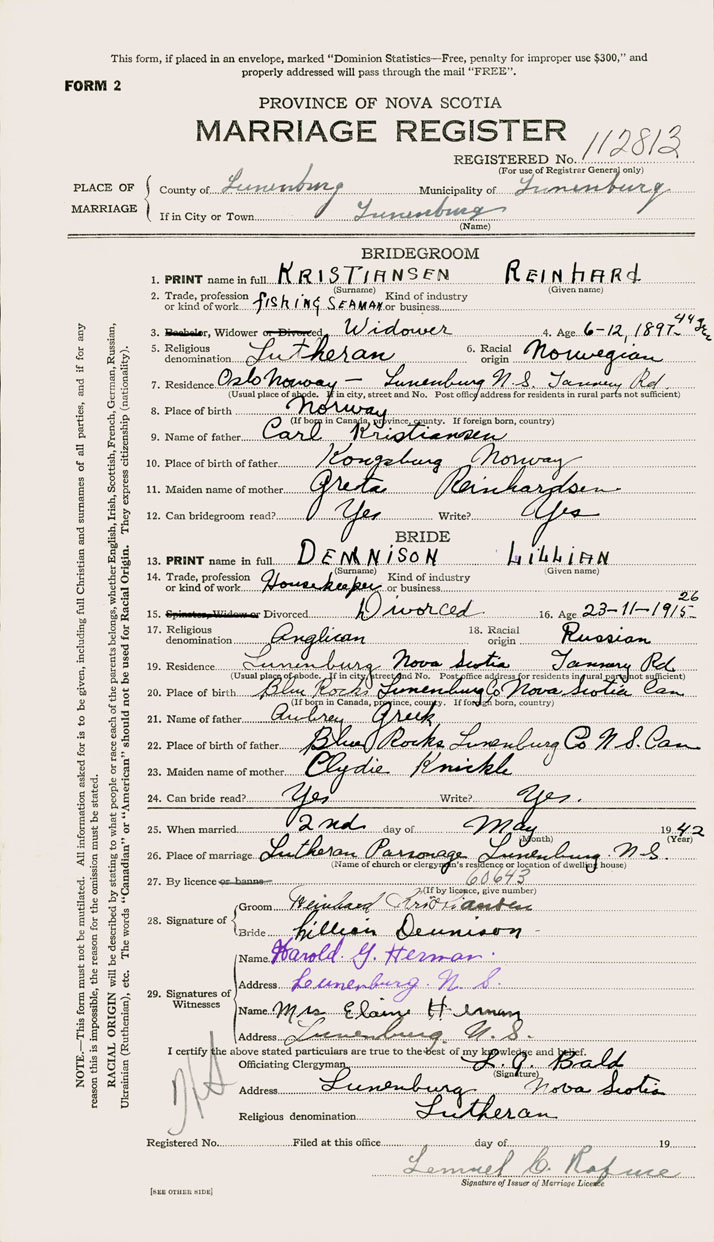 This form, if placed in an envelope, marked "Dominion Statistics—Free, penalty for improper use $300," and
properly addressed will pass through the mail "FREE".
FORM 2
PROVINCE OF NOVA SCOTIA
MARRIAGE REGISTER
REGISTERED No. 112813
(For use of Registrar General only)
PLACE OF MARRIAGE
County of Lunenburg Municipality of Lunenburg
If in City or Town Lunenburg
(Name)
BRIDEGROOM
1. PRINT name in full KRISTIANSEN REINHARD
(Surname) (Given name)
2. Trade, profession or kind of work FISHING SEAMAN Kind of industry or business
3. Bachelor, Widower or Divorced Widower 4. Age 6-12, 1897 44
5. Religious denomination Lutheran 6. Racial origin Norwegian
7. Residence Oslo Norway — Lunenburg N.S. Tannery Rd.
(Usual place of abode. If in city, street and No. Post office address for residents in rural parts not sufficient)
8. Place of birth Norway
(If born in Canada, province, county. If foreign born, country)
9. Name of father Carl Kristiansen
10. Place of birth of father Kongsburg Norway
11. Maiden name of mother Greta Reinhardsen
12. Can bridegroom read? Yes Write? Yes
BRIDE
13. PRINT name in full DENNISON LILLIAN
(Surname) (Given name)
14. Trade, profession or kind of work Housekeeper Kind of industry or business
15. Spinster, Widow or Divorced Divorced 16. Age 23-11-1915 26
17. Religious denomination Anglican 18. Racial origin Russian
19. Residence Lunenburg Nova Scotia Tannery Rd
(Usual place of abode. If in city, street and No. Post office address for residents in rural parts not sufficient)
20. Place of birth Blue Rocks Lunenburg Co Nova Scotia Can
(If born in Canada, province, county. If foreign born, country)
21. Name of father Aubrey Greek
22. Place of birth of father Blue Rocks Lunenburg Co N.S. Can
23. Maiden name of mother Clydie Knickle
24. Can bride read? Yes Write? Yes.
25. When married 2nd day of May 1942
(Month) (Year)
26. Place of marriage Lutheran Parsonage Lunenburg N.S.
(Name of church or clergyman's residence or location of dwelling house)
27. By licence or banns 60643
(If by licence, give number)
28. Signature of
Groom Reinhard Kristiansen
Bride Lillian Dennison
29. Signatures of Witnesses
Name Harold G. Herman.
Address Lunenburg N. S.
Name Mrs Elaine Herman
Address Lunenburg N. S.
I certify the above stated particulars are true to the best of my knowledge and belief.
Officiating Clergyman L. G. Bald
(Signature)
Address Lunenburg Nova Scotia
Religious denomination Lutheran
Registered No. Filed at this office day of 19
Lemuel C. Rafuse
Signature of Issuer of Marriage Licence
[SEE OTHER SIDE]
NOTE.—This form must not be mutilated. All information asked for is to be given, including full Christian and surnames of all parties, and if for any
reason this is impossible, the reason for the omission must be stated.
RACIAL ORIGIN will be described by stating to what people or race each of the parents belongs, whether English, Irish, Scottish, French, German, Russian,
Ukrainian (Ruthenian), etc. The words "Canadian" or "American" should not be used for Racial Origin. They express citizenship (nationality).